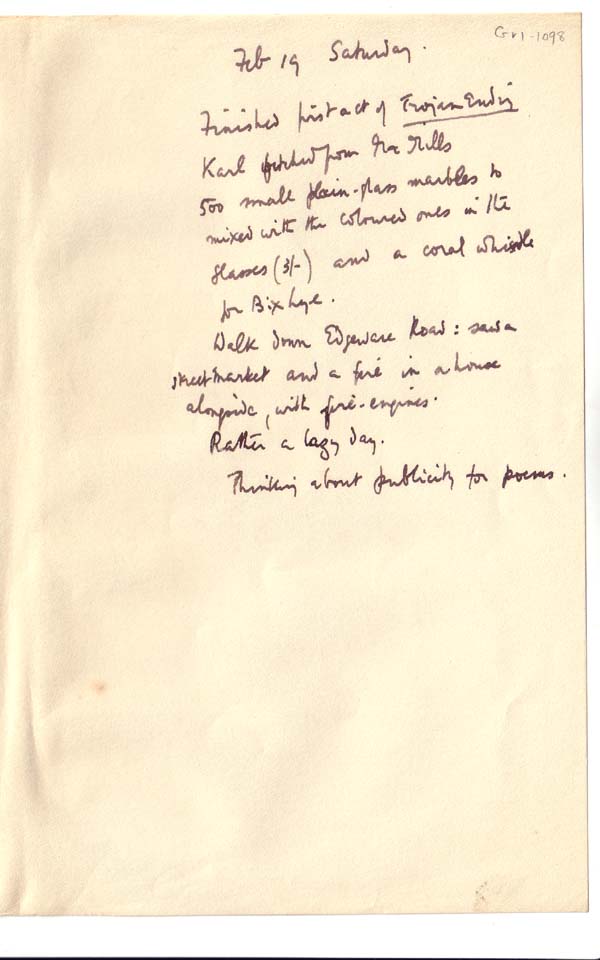 Gv1-1098
Feb 19 Saturday.
Finished first act of Trojan Ending
Karl fetched from Mills
500 small plain-glass marbles to
mixed with the coloured ones in the
glasses (3/-) and a coral whistle
for
Walk down Edgeware Road: saw a
street-market and a fire in a house
alongside, with fire-engines.
Rather a lazy day.
Thinking about publicity for poems.